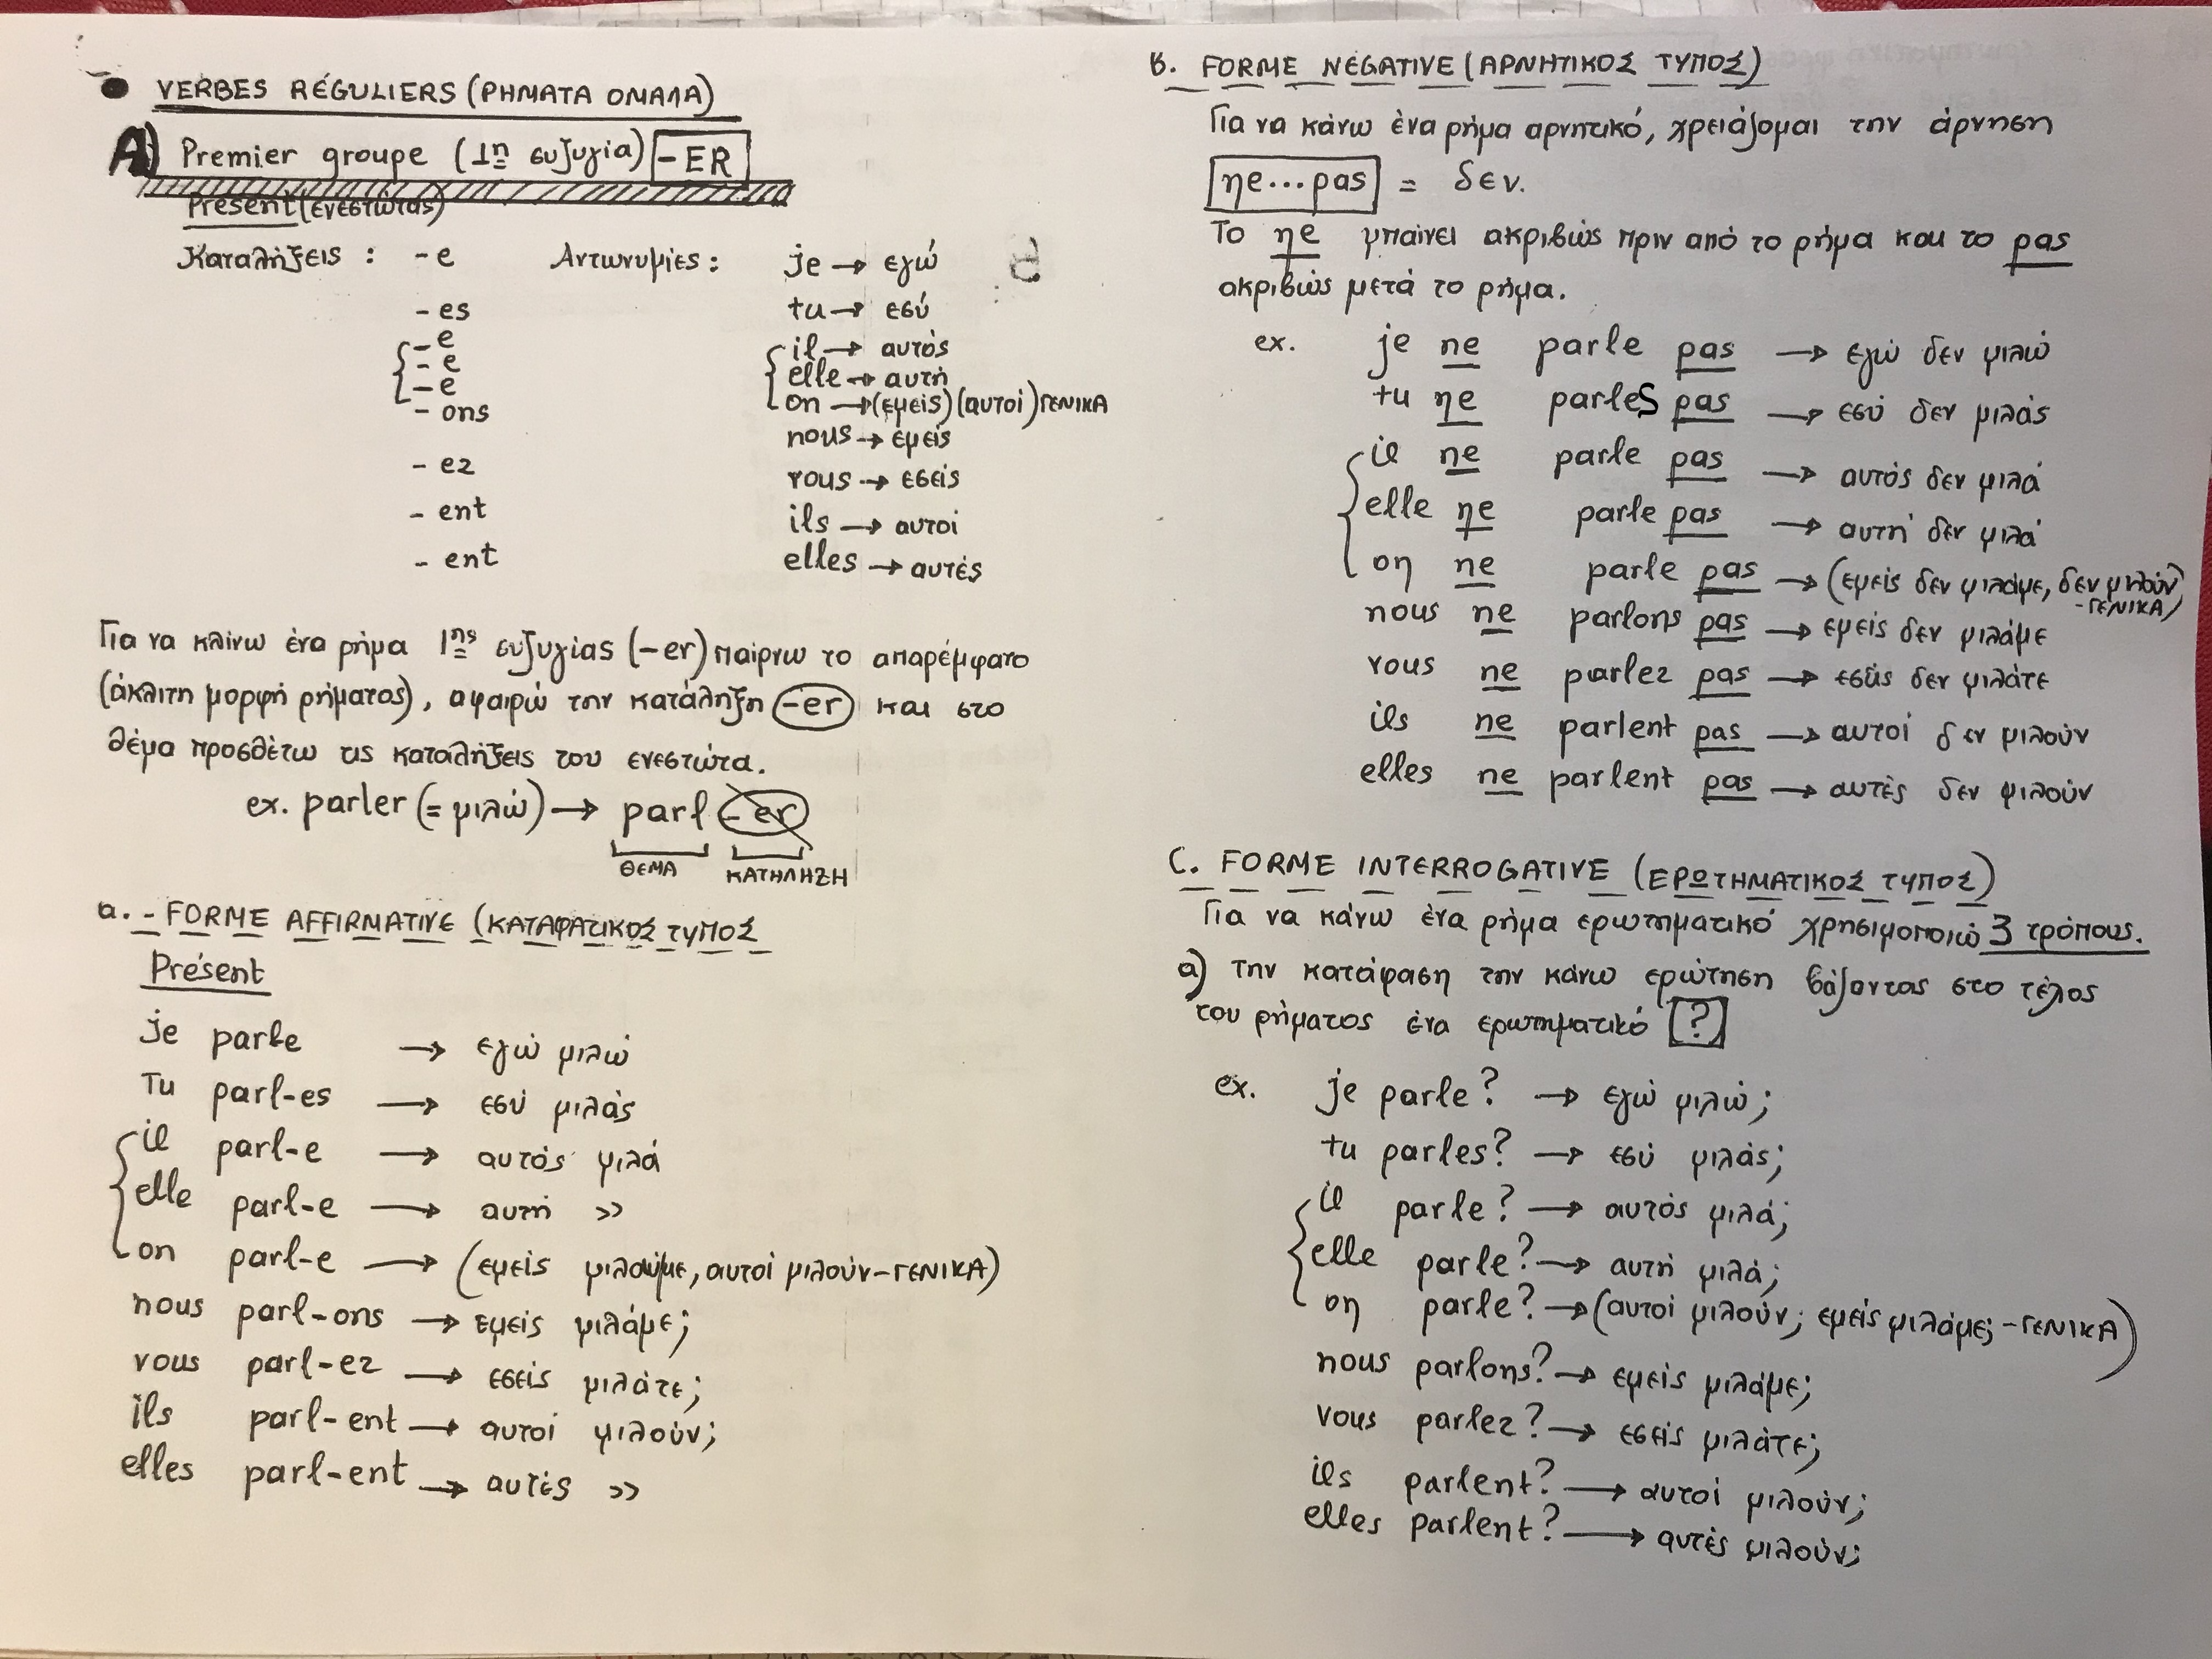 VERBES RÉGULIERS (ΡΗΜΑΤΑ ΟΜΑΛΑ)
A) Premier groupe (1η συζυγία) -ER
Présent (ενεστώτας)
Καταλήξεις : -e Αντωνυμίες : je → εγώ
-es tu → εσύ
-e il → αυτός
-e elle → αυτή
-e on → (εμείς) (αυτοί) ΓΕΝΙΚΑ
-ons nous → εμείς
-ez vous → εσείς
-ent ils → αυτοί
-ent elles → αυτές
Για να κλίνω ένα ρήμα 1ης συζυγίας (-er) παίρνω το απαρέμφατο
(άκλιτη μορφή ρήματος), αφαιρώ την κατάληξη -er και στο
θέμα προσθέτω τις καταλήξεις του ενεστώτα.
ex. parler (= μιλώ) → parl -er
ΘΕΜΑ ΚΑΤΗΛΗΞΗ
a. - FORME AFFIRMATIVE (ΚΑΤΑΦΑΤΙΚΟΣ ΤΥΠΟΣ
Présent
je parle → εγώ μιλώ
Tu parl-es → εσύ μιλάς
il parl-e → αυτός μιλά
elle parl-e → αυτή >>
on parl-e → (εμείς μιλούμε, αυτοί μιλούν-ΓΕΝΙΚΑ)
nous parl-ons → εμείς μιλάμε;
vous parl-ez → εσείς μιλάτε;
ils parl-ent → αυτοί μιλούν;
elles parl-ent → αυτές >>
B. FORME NÉGATIVE (ΑΡΝΗΤΙΚΟΣ ΤΥΠΟΣ)
Για να κάνω ένα ρήμα αρνητικό, χρειάζομαι την άρνηση
ne...pas = δεν.
Το ne μπαίνει ακριβώς πριν από το ρήμα και το pas
ακριβώς μετά το ρήμα.
ex. je ne parle pas → εγώ δεν μιλώ
tu ne parles pas → εσύ δεν μιλάς
il ne parle pas → αυτός δεν μιλά
elle ne parle pas → αυτή δεν μιλά
on ne parle pas → (εμείς δεν μιλάμε, δεν μιλούν
-ΓΕΝΙΚΑ)
nous ne parlons pas → εμείς δεν μιλάμε
vous ne parlez pas → εσείς δεν μιλάτε
ils ne parlent pas → αυτοί δεν μιλούν
elles ne parlent pas → αυτές δεν μιλούν
C. FORME INTERROGATIVE (ΕΡΩΤΗΜΑΤΙΚΟΣ ΤΥΠΟΣ)
Για να κάνω ένα ρήμα ερωτηματικό χρησιμοποιώ 3 τρόπους.
a) την κατάφαση την κάνω ερώτηση βάζοντας στο τέλος
του ρήματος ένα ερωτηματικό ?
ex. je parle? → εγώ μιλώ;
tu parles? → εσύ μιλάς;
il parle? → αυτός μιλά;
elle parle? → αυτή μιλά;
on parle? → (αυτοί μιλούν; εμείς μιλάμε; -ΓΕΝΙΚΑ)
nous parlons? → εμείς μιλάμε;
vous parlez? → εσείς μιλάτε;
ils parlent? → αυτοί μιλούν;
elles parlent? → αυτές μιλούν;